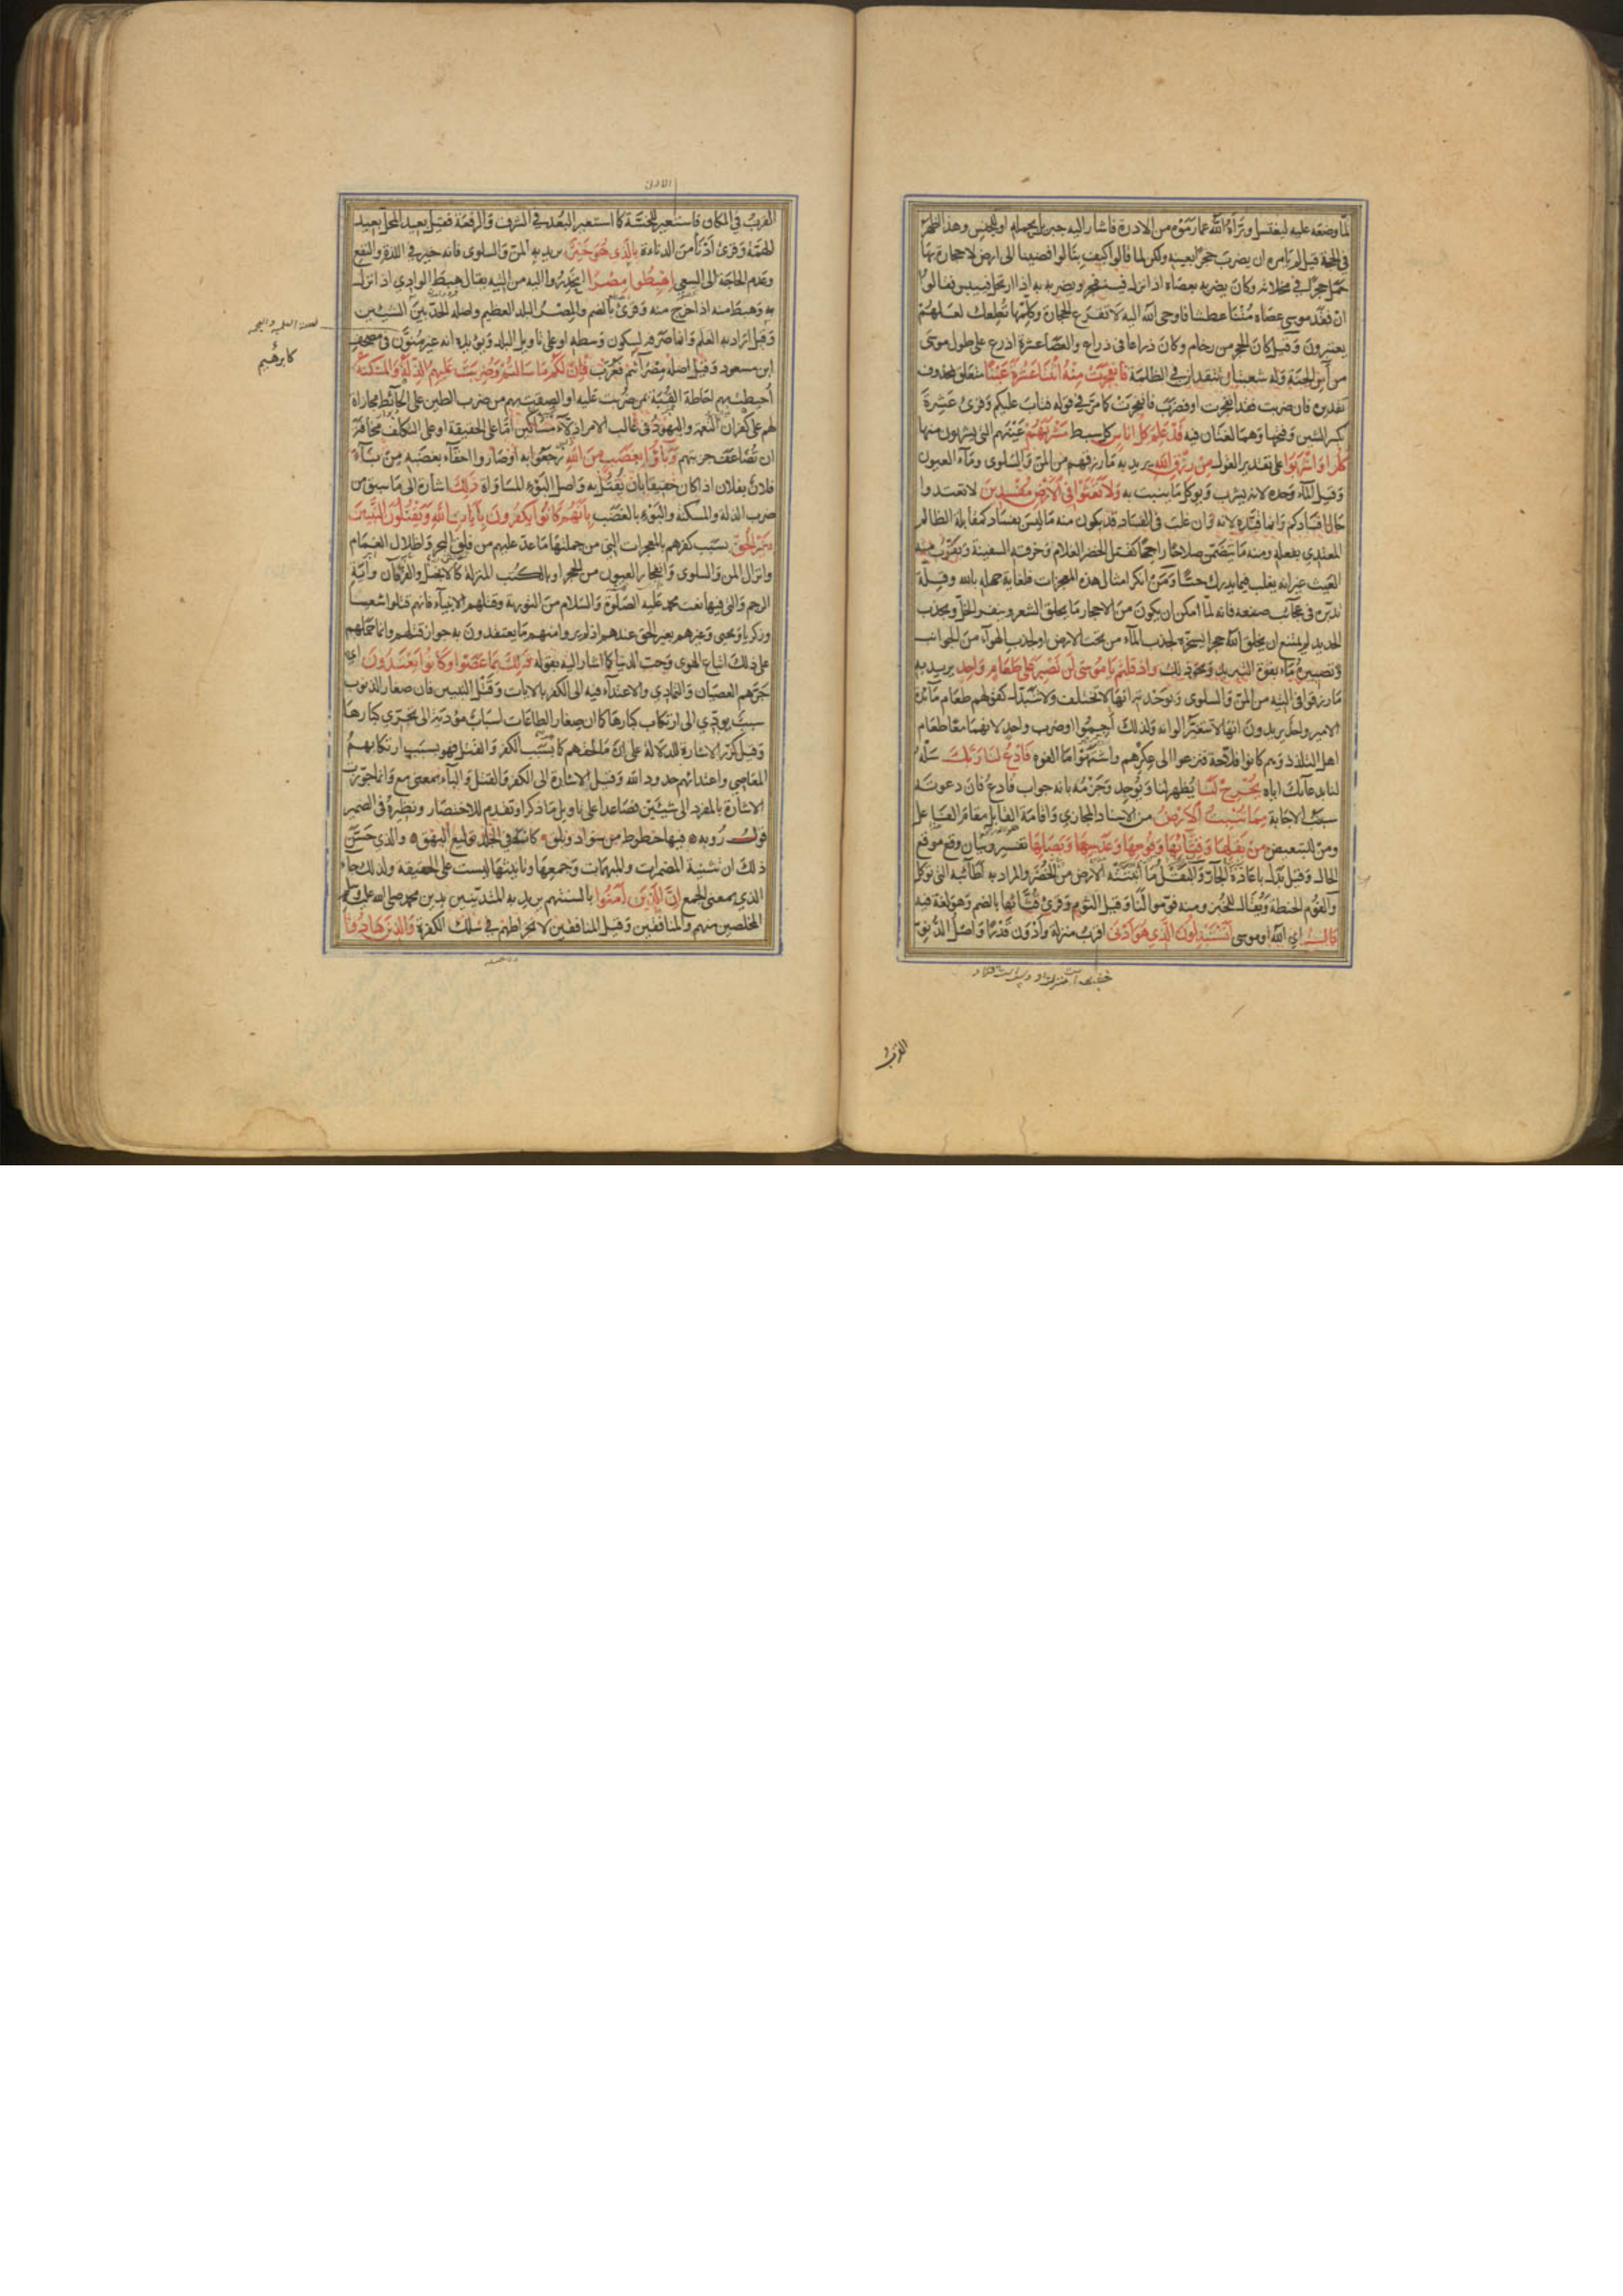 لمّا وضعه عليه ليغتسل وبرّأه الله عما رموه به من الادرة فاشار اليه جبريل بحمله او للجنس وهذا اظهر
في الحجة قيل لم يامره ان يضرب حجرا بعينه ولكن لما قالوا كيف بنا لو افضينا الى ارض لا حجارة بها
حمل حجرا في مخلاته وكان يضربه بعصاه اذا نزل فينفجر ويضربه بها اذا ارتحل فييبس فقالوا
ان فقد موسى عصاه متنا عطشا فاوحى الله اليه لا تقرع الحجارة وكلمها تطعك لعلهم
يعتبرون وقيل كان الحجر من رخام وكان ذراعا في ذراع والعصا عشرة اذرع على طول موسى
من آس الجنة وله شعبتان تتقدان في الظلمة فَانْفَجَرَتْ مِنْهُ اثْنَتَا عَشْرَةَ عَيْنًا متعلق بمحذوف
تقديره فان ضربت فقد انفجرت او فضرب فانفجرت كما مرّ في قوله فتاب عليكم وقرئ عشرة
بكسر الشين وفتحها وهما لغتان فيه قَدْ عَلِمَ كُلُّ أُنَاسٍ كل سبط مَشْرَبَهُمْ عينهم التي يشربون منها
كُلُوا وَاشْرَبُوا على تقدير القول مِنْ رِزْقِ اللهِ يريد به ما رزقهم من المنّ والسلوى وماء العيون
وقيل الماء وحده لانه يشرب ويوكل ما ينبت به وَلَا تَعْثَوْا فِي الْأَرْضِ مُفْسِدِينَ لا تعتدوا
حال افسادكم وانما قيّده لانه وان غلب في الفساد قد يكون منه ما ليس بفساد كمقابلة الظالم
المعتدي بفعله ومنه ما يتضمّن صلاحا راجحا كقتل الخضر الغلام وخرقه السفينة ويقرب منه
العيث غير انه يغلب فيما يدرك حسّا ومن انكر امثال هذه المعجزات فلغاية جهله بالله وقلة
تدبّره في عجائب صنعه فانه لما امكن ان يكون من الاحجار ما يحلق الشعر وينفر الخلّ ويجذب
الحديد لم يمتنع ان يخلق الله حجرا يسخّره لجذب الماء من تحت الارض او لجذب الهواء من الجوانب
وتصييره ماء بقوة التبريد ونحو ذلك وَإِذْ قُلْتُمْ يَا مُوسَى لَنْ نَصْبِرَ عَلَى طَعَامٍ وَاحِدٍ يريد به
ما رزقوا في التيه من المنّ والسلوى وبوحدته انها لا تختلف ولا تتبدّل كقولهم طعام مائدة
الامير واحد يريدون انها لا تتغيّر الوانه ولذلك اجموا او ضرب واحد لانهما معا طعام
اهل التلذذ وهم كانوا فلاحة فنزعوا الى عكرهم واشتهوا ما الفوه فَادْعُ لَنَا رَبَّكَ سله
لنا بدعائك اياه يُخْرِجْ لَنَا يظهر لنا ويوجد وجزمه بانه جواب فادع فان دعوته
سبب الاجابة مِمَّا تُنْبِتُ الْأَرْضُ من الاسناد المجازي واقامة القابل مقام الفاعل
ومن للتبعيض مِنْ بَقْلِهَا وَقِثَّائِهَا وَفُومِهَا وَعَدَسِهَا وَبَصَلِهَا تفسير وبيان وقع موقع
الحال وقيل بدل باعادة الجارّ والبقل ما انبتته الارض من الخضر والمراد به اطائبه التي توكل
والفوم الحنطة ويقال للخبز ومنه فوّموا لنا وقيل الثوم وقرئ قُثّائها بالضم وهو لغة فيه
قَالَ اي الله او موسى أَتَسْتَبْدِلُونَ الَّذِي هُوَ أَدْنَى اقرب منزلة وادون قدرا واصل الدنوّ
القرب
القرب في المكان فاستعير للخسّة كما استعير البعد في الشرف والرفعة فقيل بعيد المحل بعيد
الهمّة وقرئ ادنأ من الدناءة بِالَّذِي هُوَ خَيْرٌ يريد به المنّ والسلوى فانه خير في اللذة والنفع
وعدم الحاجة الى السعي اهْبِطُوا مِصْرًا انحدروا اليه من التيه يقال هبط الوادي اذا نزل
به وهبط منه اذا خرج منه وقرئ بالضم والمصر البلد العظيم واصله الحدّ بين الشيئين
وقيل اراد به العلم وانما صرفه لسكون وسطه او على تاويل البلد ويؤيده انه غير منوّن في مصحف
ابن مسعود وقيل اصله مصرائيم فعرّب فَإِنَّ لَكُمْ مَا سَأَلْتُمْ وَضُرِبَتْ عَلَيْهِمُ الذِّلَّةُ وَالْمَسْكَنَةُ
أحيطت بهم احاطة القبّة بمن ضربت عليه او الصقت بهم من ضرب الطين على الحائط مجازاة
لهم على كفران النعمة واليهود في غالب الامر اذلاء مساكين اما على الحقيقة او على التكلف مخافة
ان تضاعف جزيتهم وَبَاءُوا بِغَضَبٍ مِنَ اللهِ رجعوا به او صاروا احقاء بغضبه من باء
فلان بفلان اذا كان حقيقا بان يقتل به واصل البوء المساواة ذَلِكَ اشارة الى ما سبق من
ضرب الذلة والمسكنة والبوء بالغضب بِأَنَّهُمْ كَانُوا يَكْفُرُونَ بِآيَاتِ اللهِ وَيَقْتُلُونَ النَّبِيِّينَ
بِغَيْرِ الْحَقِّ بسبب كفرهم بالمعجرات التي من جملتها ما عدّ عليهم من فلق البحر واظلال الغمام
وانزال المن والسلوى وانفجار العيون من الحجر او بالكتب المنزلة كالانجيل والفرقان وآية
الرجم والتي فيها نعت محمد عليه الصلوة والسلام من التورية وقتلهم الانبياء فانهم قتلوا شعيبا
وزكريا ويحيى وغيرهم بغير الحق عندهم اذ لم يروا منهم ما يعتقدون به جواز قتلهم وانما حملهم
على ذلك اتباع الهوى وحب الدنيا كما اشار اليه بقوله ذَلِكَ بِمَا عَصَوْا وَكَانُوا يَعْتَدُونَ اي
جرّهم العصيان والتمادي والاعتداء فيه الى الكفر بالايات وقتل النبيين فان صغار الذنوب
سبب يودّي الى ارتكاب كبارها كما ان صغار الطاعات اسباب مؤدية الى تحرّي كبارها
وقيل كرّر الاشارة للدلالة على انّ ما لحقهم كما بسبب الكفر والقتل فهو بسبب ارتكابهم
المعاصي واعتدائهم حدود الله وقيل الاشارة الى الكفر والقتل والباء بمعنى مع وانما جوّزت
الاشارة بالمفرد الى شيئين فصاعدا على تاويل ما ذكر او تقدم للاختصار ونظيره في الضمير
قول رؤبة فيها خطوط من سواد وبلق كانه في الجلد توليع البهق والذي حسّن
ذلك ان تثنية المضمرات والمبهمات وجمعها وتانيثها ليست على الحقيقة ولذلك جاء
الذي بمعنى الجمع إِنَّ الَّذِينَ آمَنُوا بالسنتهم يريد به المتدينين بدين محمد صلى الله عليه وسلم
المخلصين منهم والمنافقين وقيل المنافقين لانخراطهم في سلك الكفرة وَالَّذِينَ هَادُوا